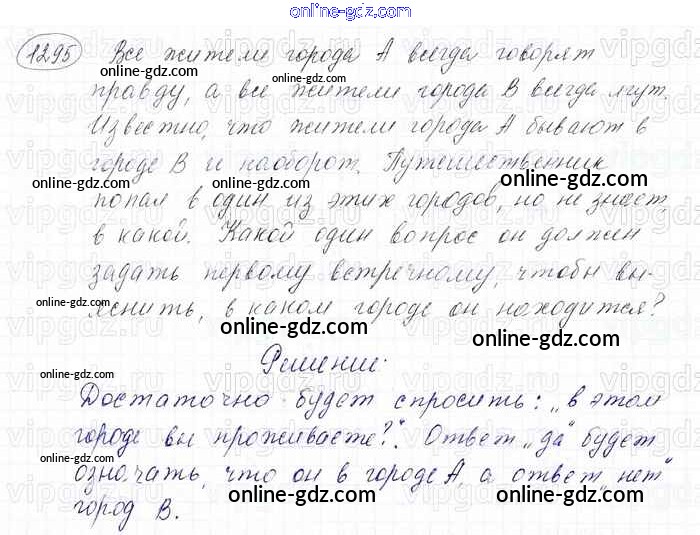 online-gdz.com
1295 Все жители города А всегда говорят
online-gdz.com online-gdz.com
правду, а все жители города В всегда лгут.
online-gdz.com
Известно, что жители города А бывают в
online-gdz.com
городе В и наоборот. Путешественник
online-gdz.com online-gdz.com online-gdz.com
попал в один из этих городов, но не знает,
в какой. Какой один вопрос он должен
online-gdz.com
задать первому встречному, чтобы вы-
online-gdz.com
яснить, в каком городе он находится?
online-gdz.com online-gdz.com
Решение:
online-gdz.com
Достаточно будет спросить: „в этом
online-gdz.com
городе вы проживаете?". Ответ „да" будет
online-gdz.com
означать, что он в городе А, а ответ „нет"
online-gdz.com online-gdz.com
город В.
online-gdz.com